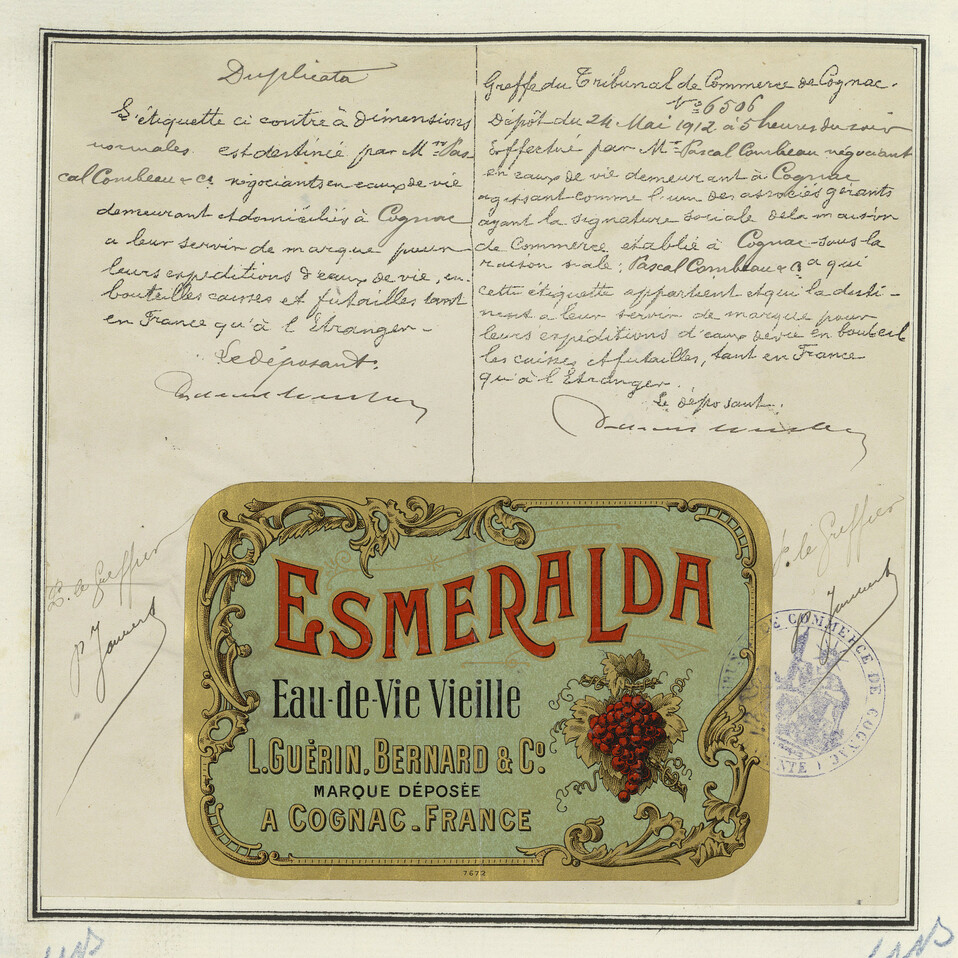 Duplicata
L'étiquette ci contre à dimensions
normales est destinée par Mrs Pas-
cal Combeau & Cie négociants en eaux de vie
demeurant et domiciliés à Cognac
a leur servir de marque pour
leurs expéditions d'eaux de vie, en
bouteilles caisses et futailles tant
en France qu'à l'Etranger.
Le déposant.
Greffe du Tribunal de Commerce de Cognac.
No 6506
Dépôt du 24 Mai 1912 à 5 heures du soir
Effectué par Mr Pascal Combeau négociant
en eaux de vie demeurant à Cognac
agissant comme l'un des associés gérants
ayant la signature sociale de la maison
de Commerce etablie à Cognac sous la
raison siale: Pascal Combeau & Cie a qui
cette étiquette appartient et qui la desti-
nent a leur servir de marque pour
leurs expéditions d'eaux de vie en bouteil
les caisses et futailles, tant en France
qu'à l'Etranger.
Le déposant.
P. le Greffier
P. le Greffier
ESMERALDA
Eau-de-Vie Vieille
L. GUÉRIN, BERNARD & Co.
MARQUE DÉPOSÉE
A COGNAC. FRANCE
7672
DE COMMERCE DE COGNAC